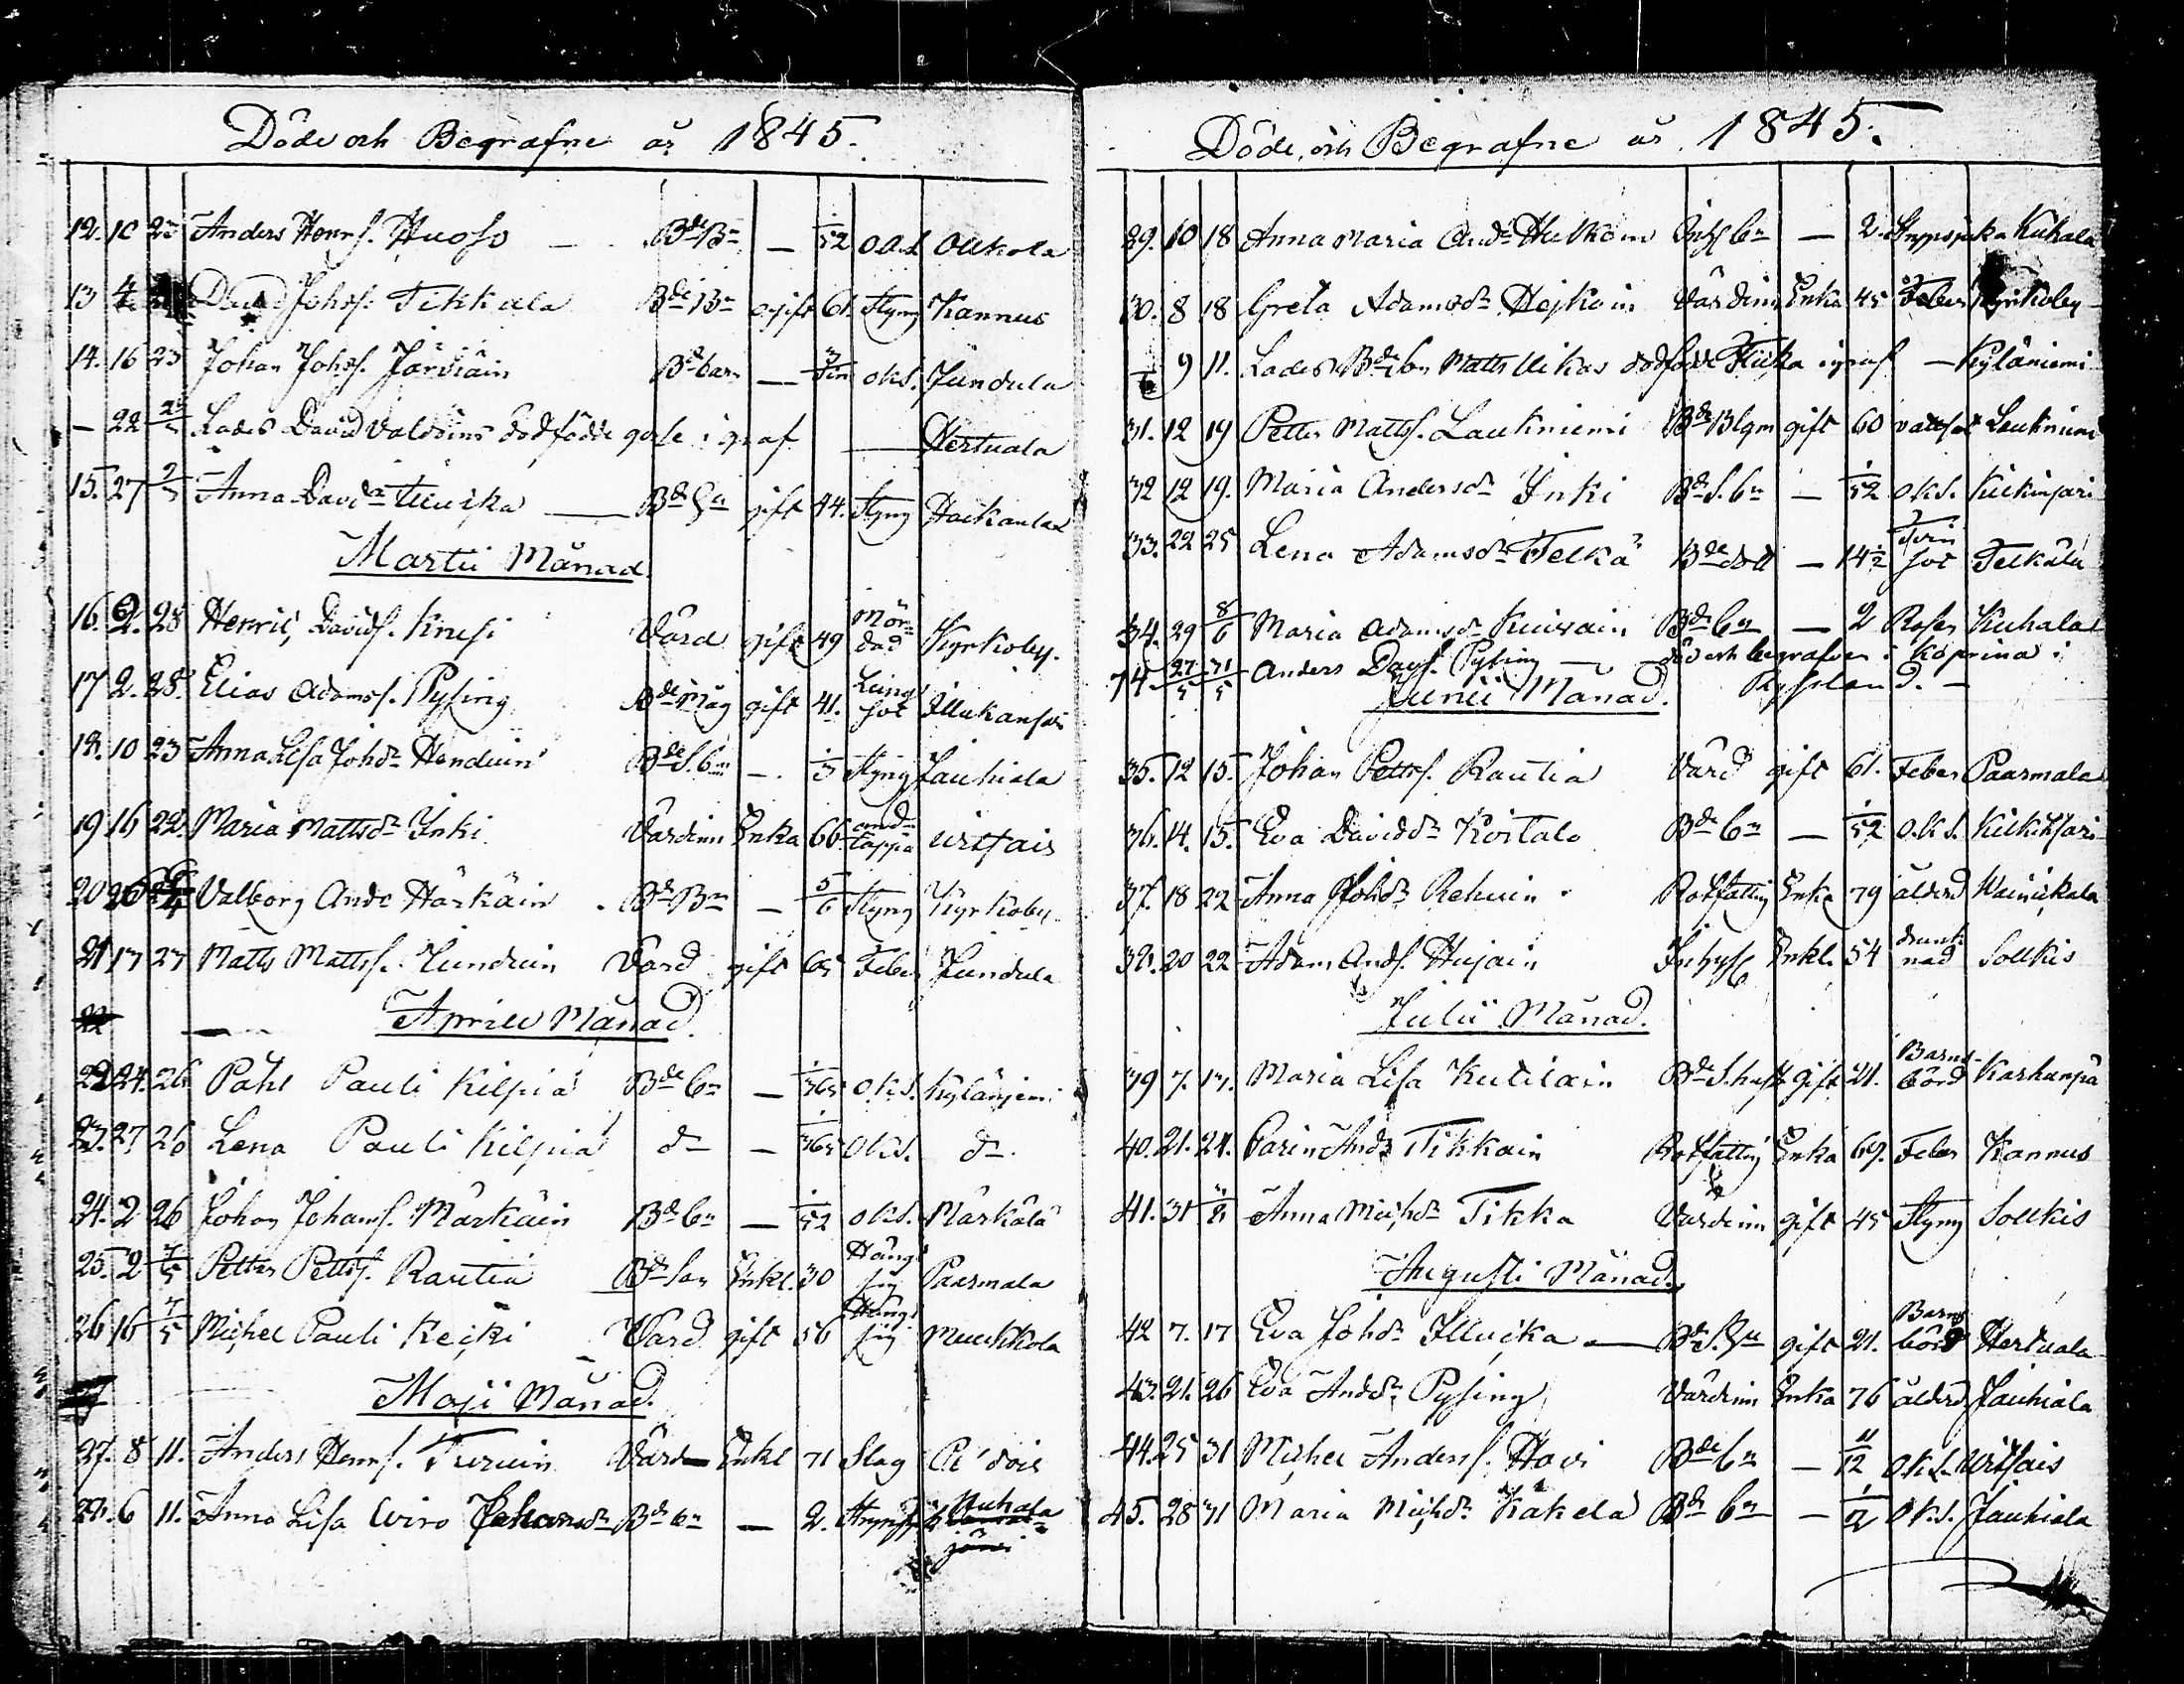 Döde och Begrafne år 1845.
12. 10 23 Anders Henrs. Huoso — Bde Bn — 1/52 O.k.S. Olkola
13 4 David Johss. Tikkala Bde Bn ogift 61. Styng Kannus
14. 16 23 Johan Johss. Järviäin Bde barn — oks. Jundula
— 22 Lades David Valdoins dödfödde gosse i graf — Hertuala
15. 27 2/3 Anna Davdr Illucka — Bde Hu gift 44. Styng Haikanlax
Martii Månad.
16. 2. 28 Henric Davids. Krusi Värd gift 49 Mördad Kyrkoby.
17 2. 28. Elias Adamss. Pysing Bde Måg gift 41. Lungsot Illukansari
18. 10 23 Anna Lisa Johdr Henduin Bde S. bn — Styng Jauhiala
19 16 22. Maria Mattsdr Inki Värdinn Enka 66 andtäppa Urisais
20 26 Valborg Andr Härkäin Bde Bn — 5/6 Styng Kyrkoby.
21 17 27 Matts Mattss. Junduin Värd gift 65 Feber Jundula
Aprill Månad.
22 24. 26 Påhl Pauli Kilpiä Bde bn — 1/365 o.k.S. Kyläniemi
23. 27 26 Lena Pauli Kilpiä do — 1/365 O.k.S. do.
24. 2 26 Johan Johanss. Märkäin Bde bn — 1/52 o.k.s. Märkälä
25. 2 4/5 Petter Petterss. Rautia Bde Son Enkl. 30 Hängt sig Paarmala
26 16 4/5 Michel Pauli Keicki Värd gift 56 Hängt sig Muukkola
Maji Månad.
27. 8 11. Anders Henrs. Turuin Värd Enkl 71 Slag
28. 6 11. Anna Lisa Wiro Johansdr Bde bn — 2. Kuhala
Döde och Begrafne år 1845.
29. 10 18 Anna Maria Andr Hulkoin Inhs bn — 2. Kuhala
30. 8 18 Greta Adamsdr Hejkoin Värdinn Enka 45 Feber Kyrkoby
— 9 11. Lades Bde bn Matts Ukas dödfödde Flicka i graf — Kyläniemi
31. 12 19 Petter Mattss. Laukniemi Bde Blgm gift 60 vattsot Laukniemi
32 12 19. Maria Andersdr Inki Bde S. bn — 1/52 o.k.s. Kilkinsari
33. 22 25 Lena Adamsdr Telkä Bde dott — 14 1/2 Tvinsot Telkälä
34. 29 8/6 Maria Adamsdr Kuivain Bde bn — 2 Rosen Kuhala
74. 27/5 31/5 Anders Davs. Pysing — död och begrafven i Koprina i Ryssland. —
Junii Månad.
35. 12 15. Johan Petterss. Rautia Värd gift 61. Feber Paarmala
36. 14. 15. Eva Daviddr Koitalo Bde bn — 1/52 o.k.s. Kilkihsari
37. 18 22 Anna Johdr Rehuin Rotfattig Enka 79 ålderd Wainickala
38. 20 22 Adam Ands. Hujain Inhys Enkl. 54 drunknad Sollkis
Julii Månad.
39 7. 13. Maria Lisa Kutilain Bde S. hust gift 21. Barnsbörd Karhunpä
40. 21. 24. Carin Andr Tikkain Rotfattig Enka 69. Feber Kannus
41. 31 Anna Michdr Tikka Värdinn gift 45 Styng Sollkis
Augusti Månad.
42 7. 17 Eva Johdr Illucka — Bde S. Hu gift 21. Barnsbörd Hertuala
43. 21. 26 Eva Andrdr Pysing Värdinn Enka 76 ålderd Jauhiala
44. 25 31 Michel Anderss. Havi Bde bn — 11/12 o.k.s. Urisais
45. 28 31 Maria Michdr Kakela Bde bn — 1/12 o.k.s. Jauhiala